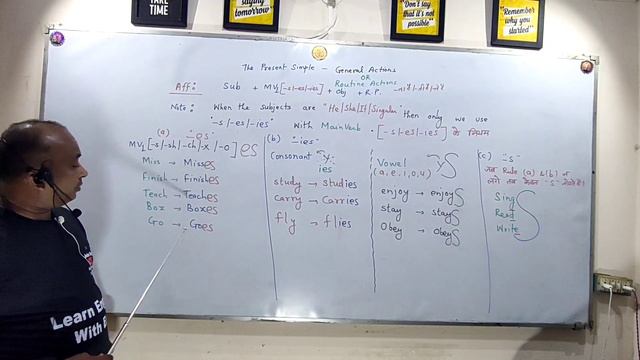 TAKE
TIME
saying
tomorrow
"Don't say
that it's not
possible"
"Remember
why you
started"
The Present Simple - General Actions
OR
Routine Actions
Aff: Sub + MV1[-s/-es/-ies] + Obj + R.P.
Note: When the subjects are "He/She/It/Singular" then only we use
"-s/-es/-ies" with Main Verb. [-s/-es/-ies] के नियम
(a) -es
MV1[-s/-sh/-ch/-x/-o] es
Miss → Misses
Finish → Finishes
Teach → Teaches
Box → Boxes
Go → Goes
(b) -ies
Consonant + y
ies
study → studies
carry → carries
fly → flies
Vowel yS
(a, e, i, o, u)
enjoy → enjoyS
stay → stayS
Obey → ObeyS
(c) -s
जब Rule (a) & (b) न
Sing
Read
Write
S
Learn E
With E